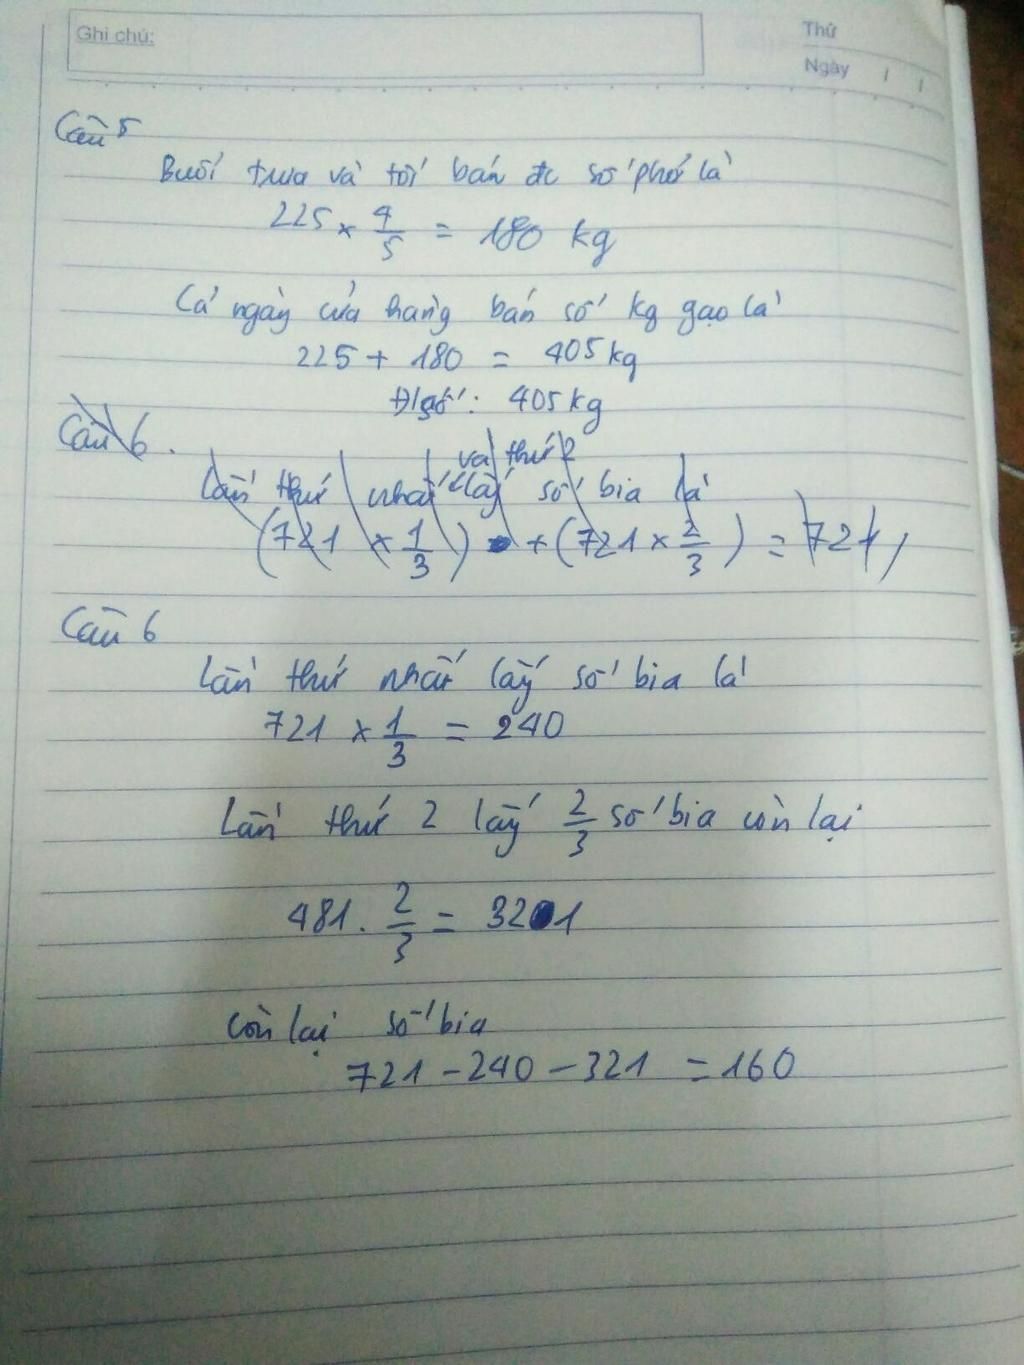 Ghi chú:
Thứ
Ngày / /
Câu 5
Buổi trưa và tối bán đc số phở là
225 × 4/5 = 180 kg
Cả ngày cửa hàng bán số kg gạo là
225 + 180 = 405 kg
Đ/số: 405 kg
Câu 6.
và thứ 2
Lần thứ nhất lấy số bia là
(721 × 1/3) + (721 × 2/3) = 721
Câu 6
Lần thứ nhất lấy số bia là
721 × 1/3 = 240
Lần thứ 2 lấy 2/3 số bia còn lại
481 . 2/3 = 321
Còn lại số bia
721 - 240 - 321 = 160